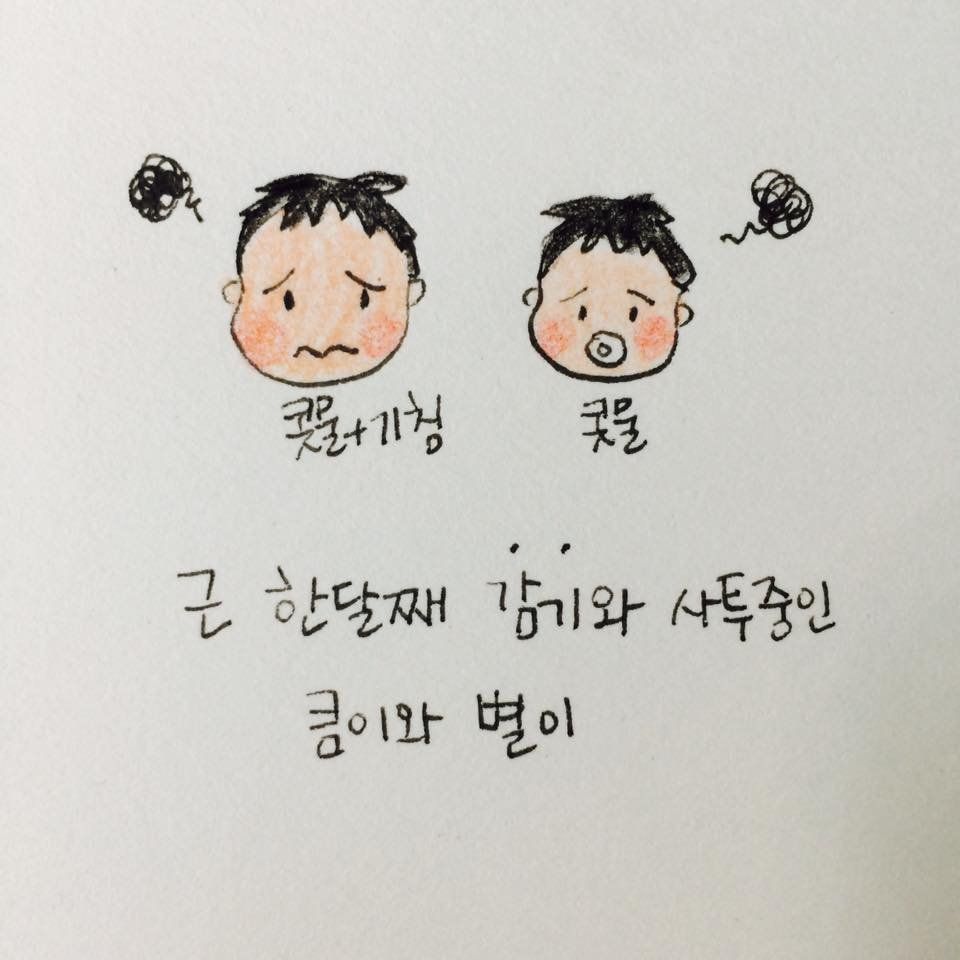 콧물+기침
콧물
근 한달째 감기와 사투중인
큼이와 별이